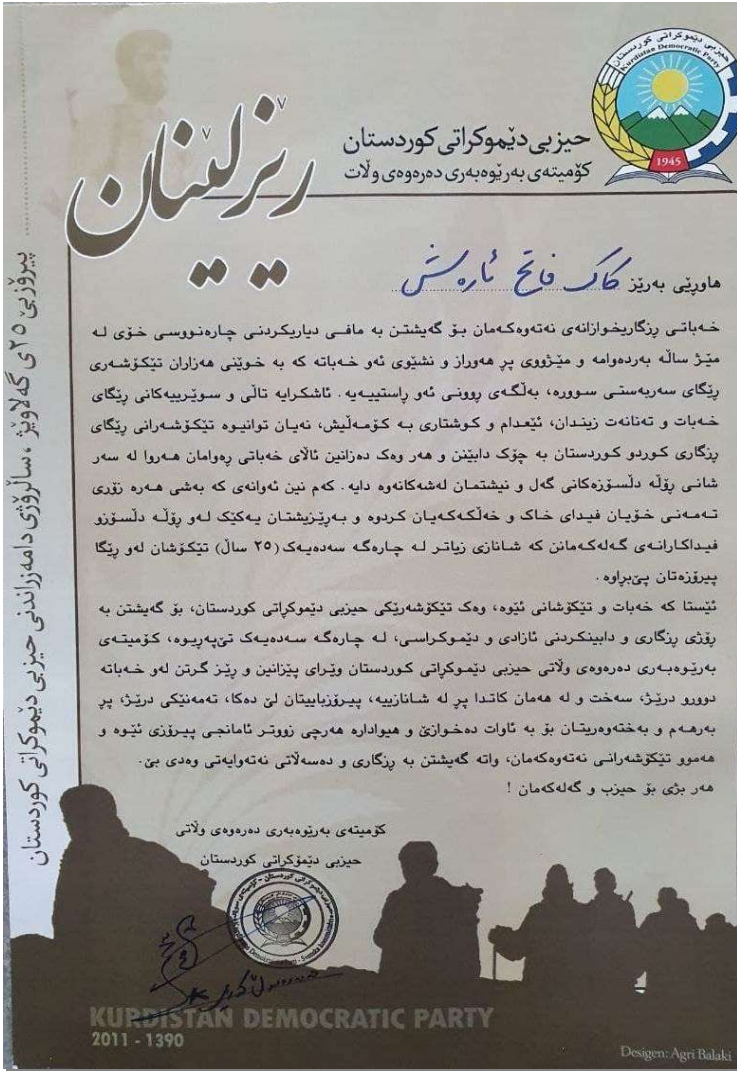 حیزبی دێموکراتی کوردستان
Kurdistan Democratic Party
1945
حیزبی دێموکراتی کوردستان
کۆمیتەی بەڕێوەبەری دەرەوەی وڵات
ڕێزلێنان
هاوڕێی بەڕێز کاک فاتح ئارەش
خەباتی ڕزگاریخوازانەی نەتەوەکەمان بۆ گەیشتن بە مافی دیاریکردنی چارەنووسی خۆی لە
مێژ ساڵە بەردەوامە و مێژووی پڕ هەوراز و نشێوی ئەو خەباتە کە بە خوێنی هەزاران تێکۆشەری
ڕێگای سەربەستی سوورە، بەڵگەی ڕوونی ئەو ڕاستییەیە. ئاشکرایە تاڵی و سوێرییەکانی ڕێگای
خەبات و تەنانەت زیندان، ئێعدام و کوشتاری بە کۆمەڵیش، نەیان توانیوە تێکۆشەرانی ڕێگای
ڕزگاری کوردو کوردستان بە چۆک دابێنن و هەر وەک دەزانین ئاڵای خەباتی ڕەوامان هەروا لە سەر
شانی ڕۆڵە دڵسۆزەکانی گەل و نیشتمان لەشەکانەوە دایە. کەم نین ئەوانەی کە بەشی هەرە زۆری
تەمەنی خۆیان فیدای خاک و خەڵکەکەیان کردوە و بەڕێزیشتان یەکێک لەو ڕۆڵە دڵسۆزو
فیداکارانەی گەلەکەمانن کە شانازی زیاتر لە چارەگە سەدەیەک (٢٥ ساڵ) تێکۆشان لەو ڕێگا
پیرۆزەتان پێبڕاوە.
ئێستا کە خەبات و تێکۆشانی ئێوە، وەک تێکۆشەرێکی حیزبی دێموکراتی کوردستان، بۆ گەیشتن بە
ڕۆژی ڕزگاری و دابینکردنی ئازادی و دێموکراسی، لە چارەگە سەدەیەک تێپەڕیوە، کۆمیتەی
بەڕێوەبەری دەرەوەی وڵاتی حیزبی دێموکراتی کوردستان وێڕای پێزانین و ڕێز گرتن لەو خەباتە
دوورو درێژ، سەخت و لە هەمان کاتدا پڕ لە شانازییە، پیرۆزباییتان لێ دەکا، تەمەنێکی درێژ، پڕ
بەرهەم و بەختەوەریتان بۆ بە ئاوات دەخوازێ و هیوادارە هەرچی زووتر ئامانجی پیرۆزی ئێوە و
هەموو تێکۆشەرانی نەتەوەکەمان، واتە گەیشتن بە ڕزگاری و دەسەڵاتی نەتەوایەتی وەدی بێ.
هەر بژی بۆ حیزب و گەلەکەمان !
کۆمیتەی بەڕێوەبەری دەرەوەی وڵاتی
حیزبی دێمۆکراتی کوردستان
پیرۆزبێ ٢٥ی گەلاوێژ، ساڵڕۆژی دامەزراندنی حیزبی دێموکراتی کوردستان
KURDISTAN DEMOCRATIC PARTY
2011 - 1390
Desigen: Agri Balaki